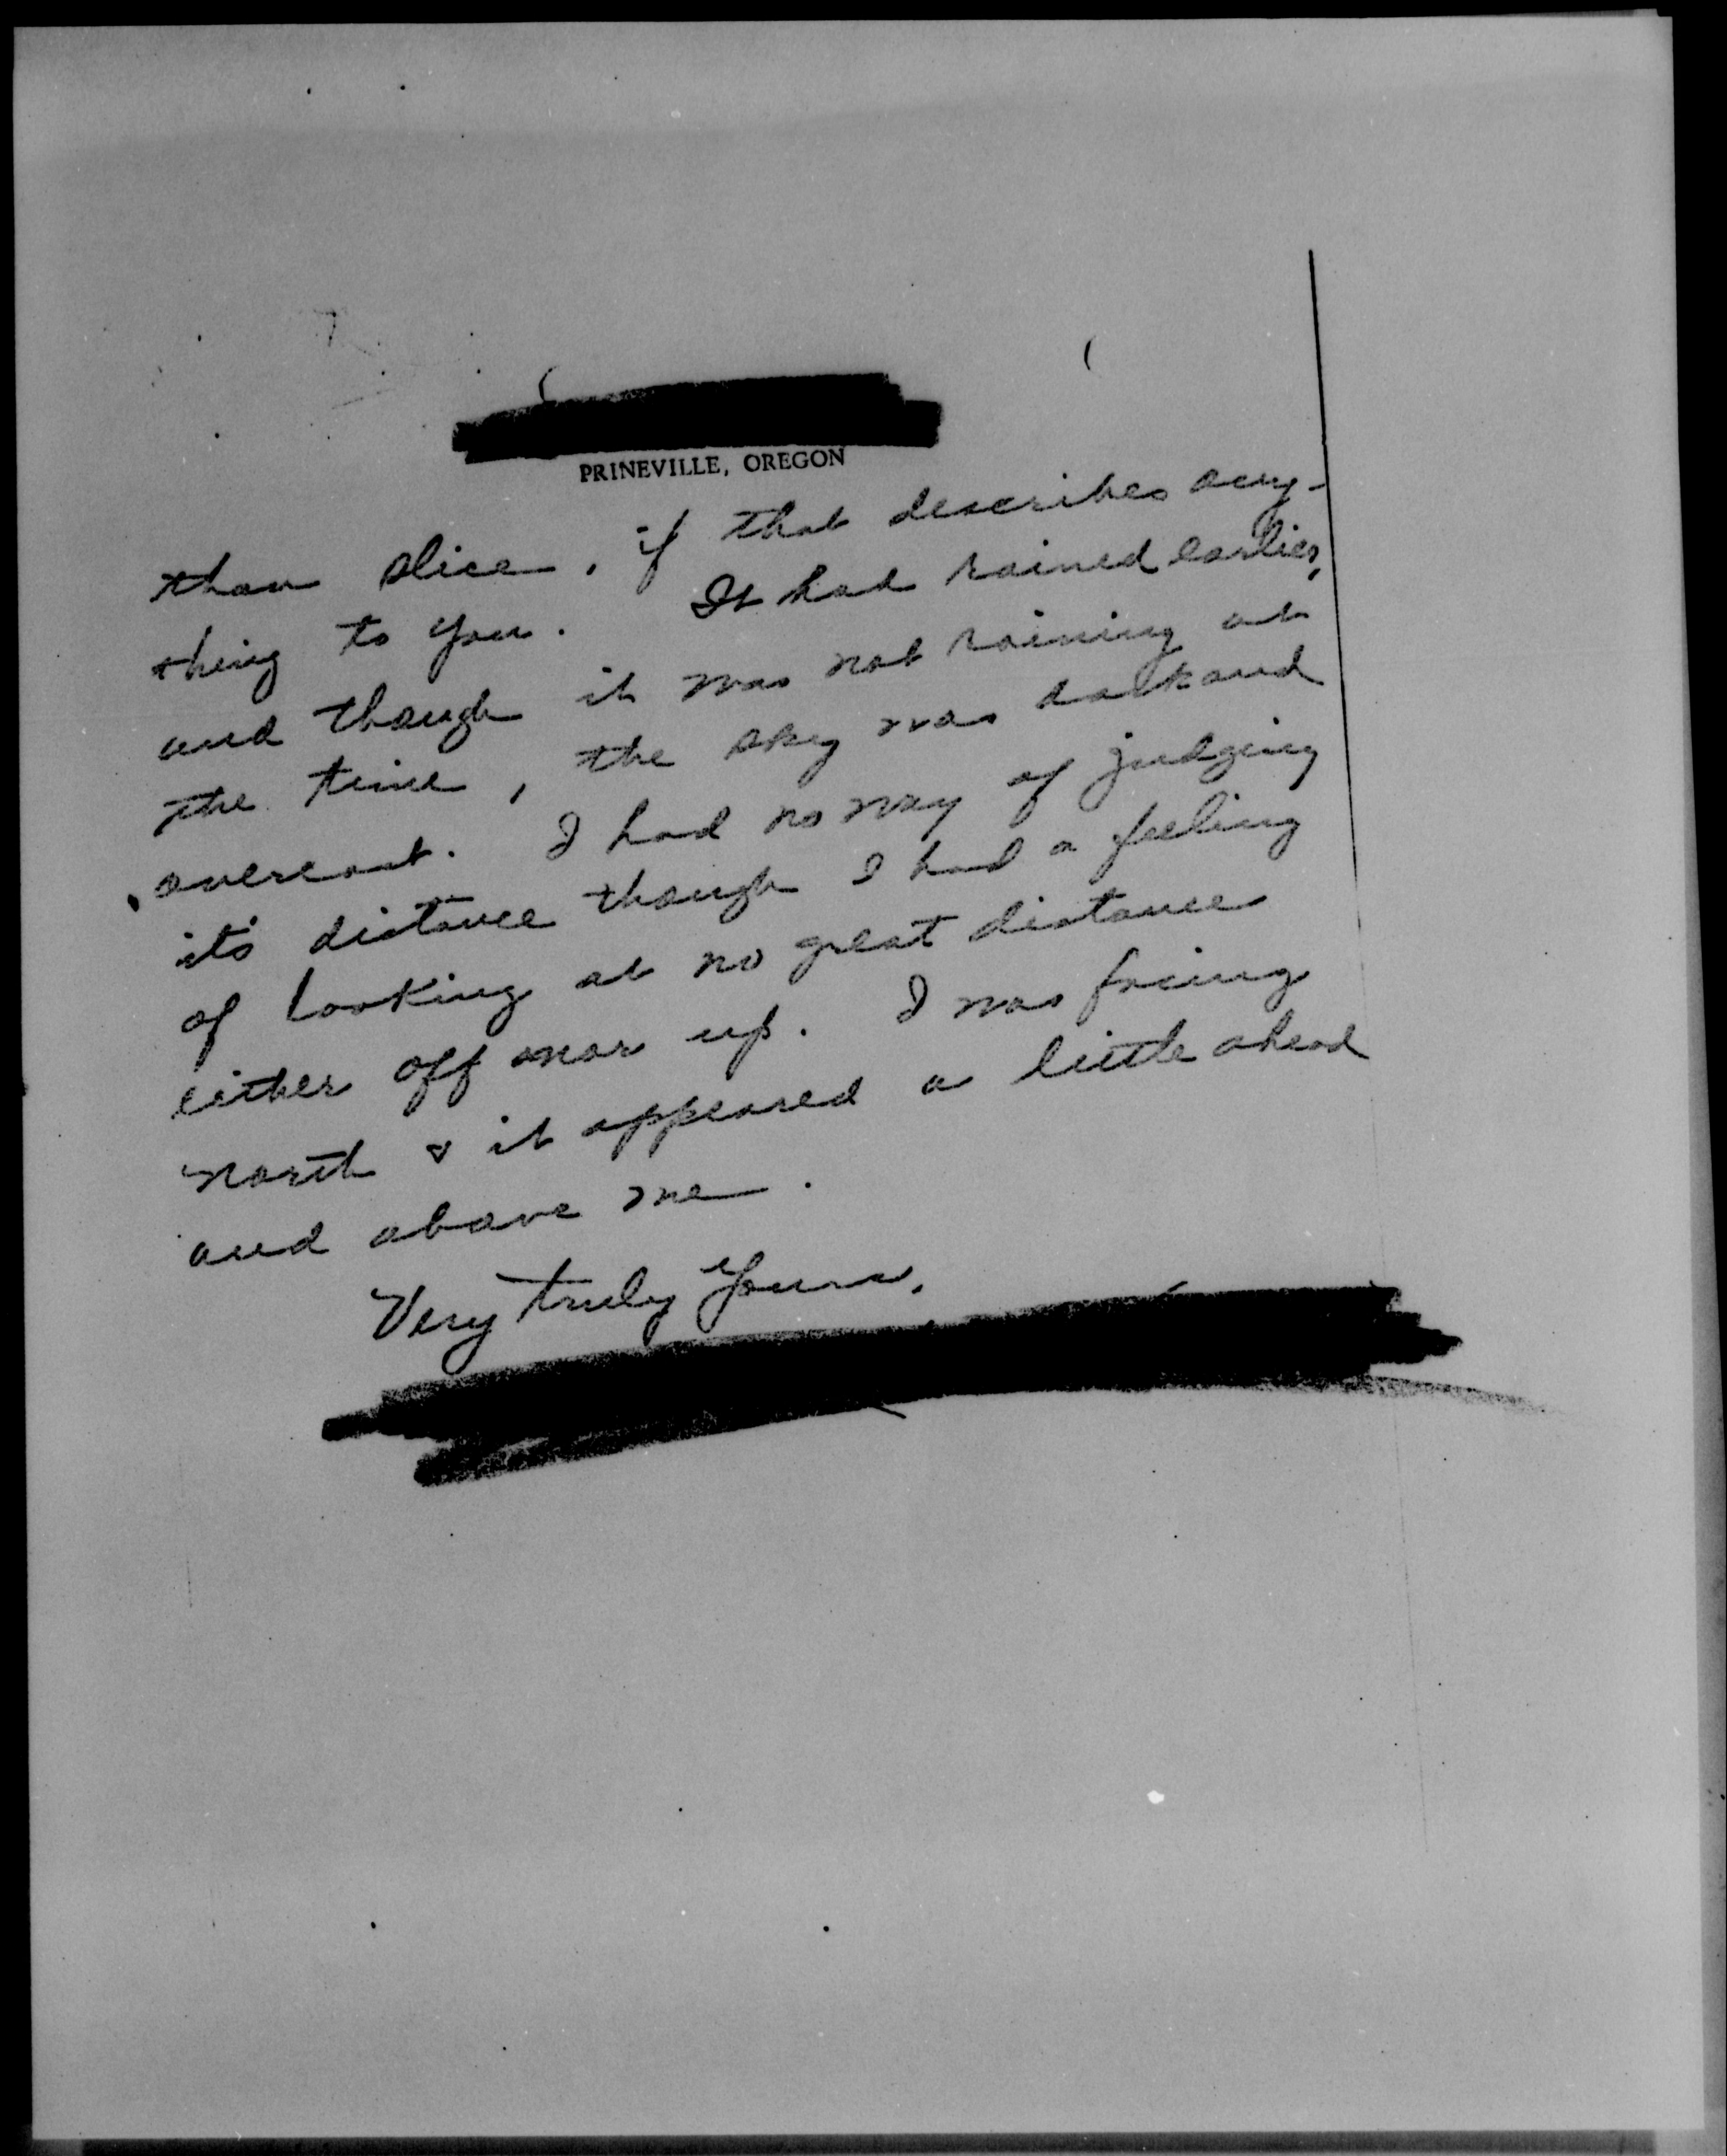 PRINEVILLE, OREGON
than slice, if that describes any-
thing to you. It had rained earlier,
and though it was not raining at
the time, the sky was dark and
overcast. I had no way of judging
it's distance though I had a feeling
of looking at no great distance
either off nor up. I was facing
north & it appeared a little ahead
and above me.
Very truly yours,